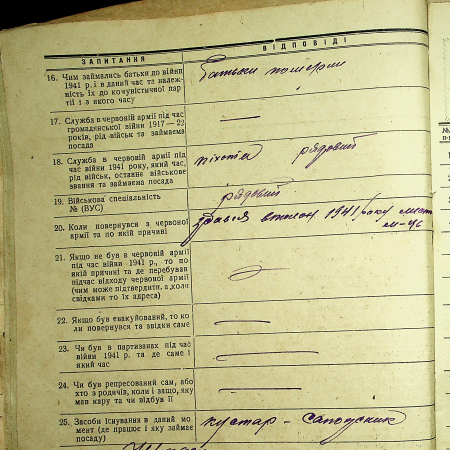 ЗАПИТАННЯ
ВІДПОВІДІ
16. Чим займались батьки до війни
1941 р. і в даний час та належ-
ність їх до комуністичної пар-
тії і з якого часу
Батьки померли
17. Служба в червоній армії під час
громадянської війни 1917—22
років, рід військ та займаєма
посада
—
18. Служба в червоній армії під
час війни 1941 року, який час,
рід військ, останнє військове
звання та займаєма посада
піхота рядовий
19. Військова спеціальність
№ (ВУС)
рядовий
20. Коли повернувся з червоної
армії та по якій причині
здався в полон 1941 року
21. Якщо не був в червоній армії
під час війни 1941 р., то по
якій причині та де перебував
підчас відходу червоної армії
(чим може підтвердити, а коли
свідками то їх адреса)
—
22. Якщо був евакуйований, то ко-
ли повернувся та звідки саме
—
23. Чи був в партизанах під час
війни 1941 р. та де саме і
який час
—
24. Чи був репресований сам, або
хто з родичів, коли і защо, яку
мав кару та чи відбув її
—
25. Засоби існування в даний мо-
мент (де працює і яку займає
посаду)
кустар -